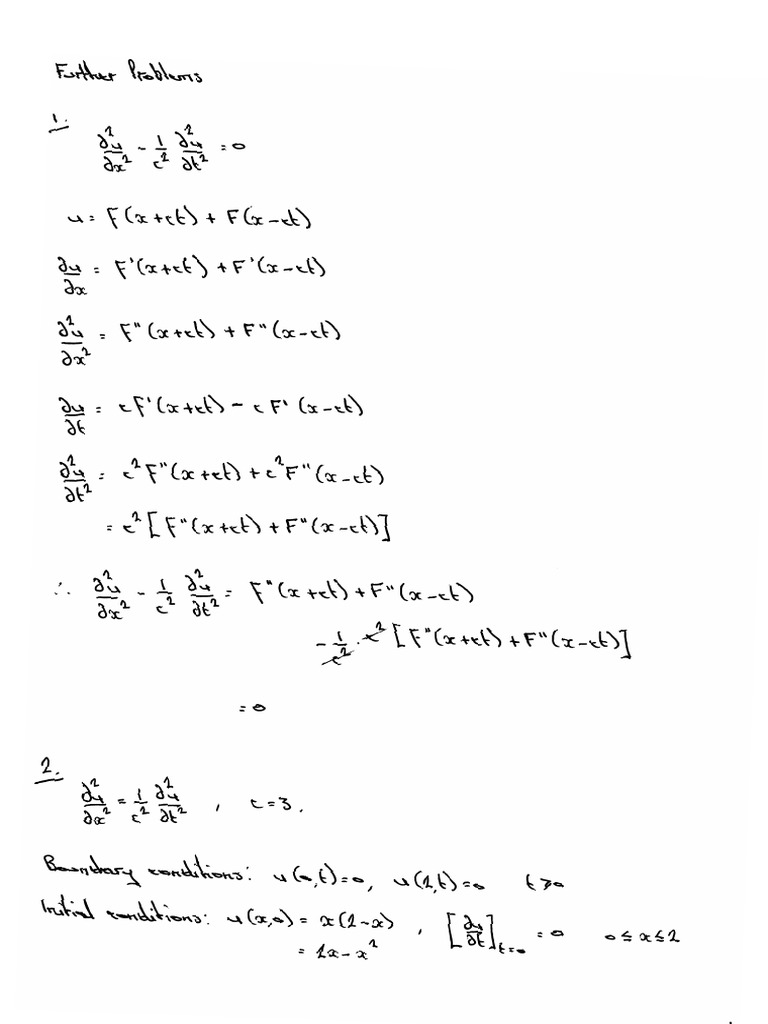 Further Problems
1.
∂²u/∂x² - 1/c² ∂²u/∂t² = 0
u = F(x+ct) + F(x-ct)
∂u/∂x = F'(x+ct) + F'(x-ct)
∂²u/∂x² = F"(x+ct) + F"(x-ct)
∂u/∂t = cF'(x+ct) - cF'(x-ct)
∂²u/∂t² = c²F"(x+ct) + c²F"(x-ct)
= c²[F"(x+ct) + F"(x-ct)]
∴ ∂²u/∂x² - 1/c² ∂²u/∂t² = F"(x+ct) + F"(x-ct)
- 1/c² · c² [F"(x+ct) + F"(x-ct)]
= 0
2.
∂²u/∂x² = 1/c² ∂²u/∂t² , c = 3.
Boundary conditions: u(0,t) = 0, u(2,t) = 0 t ≥ 0
Initial conditions: u(x,0) = x(2-x) , [∂u/∂t]t=0 = 0 0 ≤ x ≤ 2
= 2x - x²